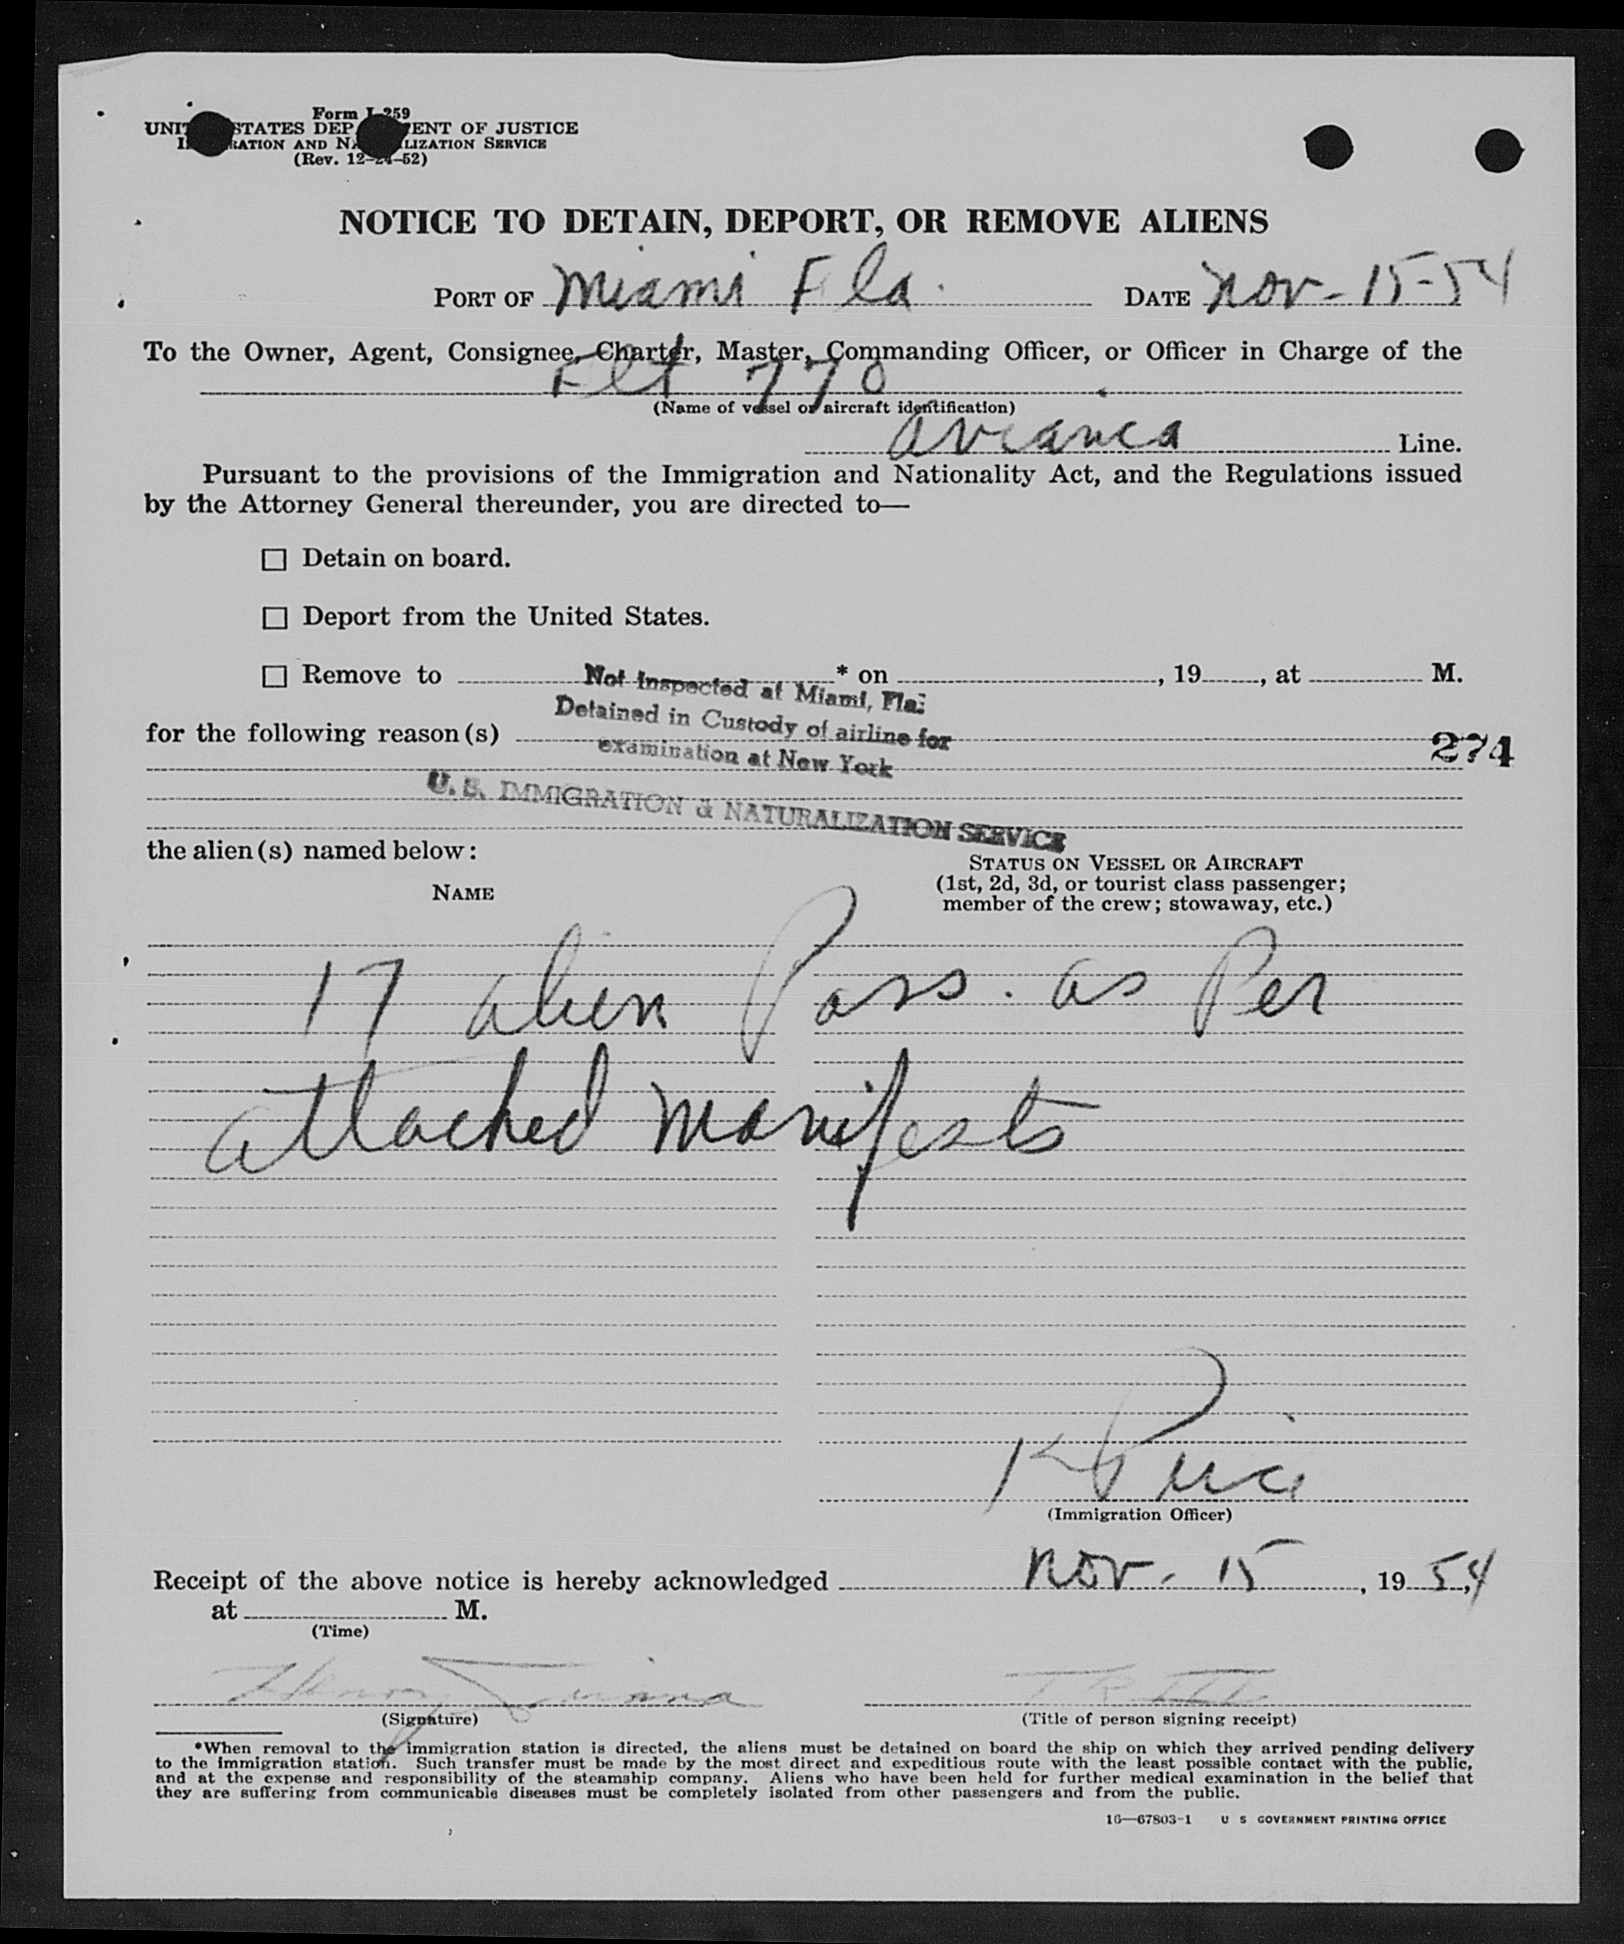 Form I-259
UNITED STATES DEPARTMENT OF JUSTICE
IMMIGRATION AND NATURALIZATION SERVICE
(Rev. 12-24-52)
NOTICE TO DETAIN, DEPORT, OR REMOVE ALIENS
PORT OF Miami Fla. DATE Nov-15-54
To the Owner, Agent, Consignee, Charter, Master, Commanding Officer, or Officer in Charge of the
Flt 770
(Name of vessel or aircraft identification)
Avianca Line.
Pursuant to the provisions of the Immigration and Nationality Act, and the Regulations issued
by the Attorney General thereunder, you are directed to—
☐ Detain on board.
☐ Deport from the United States.
☐ Remove to * on , 19 , at M.
Not Inspected at Miami, Fla.
Detained in Custody of airline for
for the following reason(s)
examination at New York
274
U. S. IMMIGRATION & NATURALIZATION SERVICE
the alien(s) named below:
STATUS ON VESSEL OR AIRCRAFT
NAME (1st, 2d, 3d, or tourist class passenger;
member of the crew; stowaway, etc.)
17 alien Pass. as Per
attached manifests
K Price
(Immigration Officer)
Receipt of the above notice is hereby acknowledged Nov. 15, 1954,
at M.
(Time)
Henry
(Signature) (Title of person signing receipt)
*When removal to the immigration station is directed, the aliens must be detained on board the ship on which they arrived pending delivery
to the immigration station. Such transfer must be made by the most direct and expeditious route with the least possible contact with the public,
and at the expense and responsibility of the steamship company. Aliens who have been held for further medical examination in the belief that
they are suffering from communicable diseases must be completely isolated from other passengers and from the public.
16—67803-1 U S GOVERNMENT PRINTING OFFICE